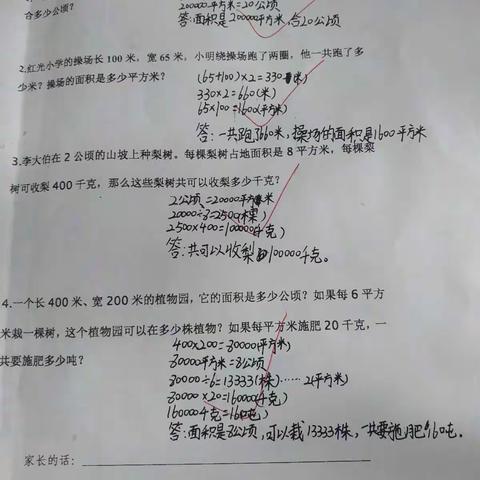 200000平方米=20公顷
合多少公顷?
答:面积是200000平方米,合20公顷
2.红光小学的操场长 100 米,宽 65 米,小明绕操场跑了两圈,他一共跑了多
少米?操场的面积是多少平方米?
(65+100)×2=330(米)
330×2=660(米)
65×100=1600(平方米)
答:一共跑660米,操场的面积是1600平方米
3.李大伯在 2 公顷的山坡上种梨树。每棵梨树占地面积是 8 平方米,每棵梨
树可收梨 400 千克,那么这些梨树共可以收梨多少千克?
2公顷=20000平方米
20000÷8=2500(棵)
2500×400=100000(千克)
答:共可以收梨100000千克。
4.一个长 400 米、宽 200 米的植物园,它的面积是多少公顷?如果每 6 平方
米栽一棵树,这个植物园可以在多少株植物?如果每平方米施肥 20 千克,一
共要施肥多少吨?
400×200=80000(平方米)
80000平方米=8公顷
80000÷6=13333(棵)……2(平方米)
80000×20=160000(千克)
160000千克=160(吨)
答:面积是8公顷,可以栽13333株,一共要施肥160吨。
家长的话: